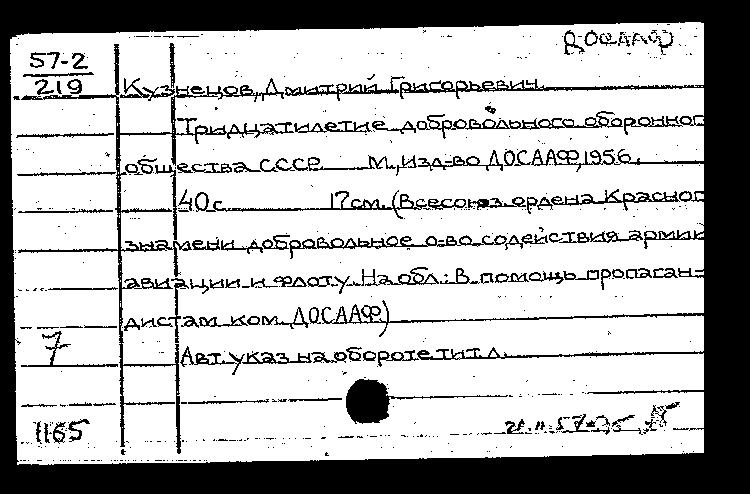 ДОСААФ
57-2
219
Кузнецов, Дмитрий Григорьевич.
Тридцатилетие добровольного оборонног
общества СССР М., Изд-во ДОСААФ, 1956.
40с 17см. (Всесоюз. ордена Красног
знамени добровольное о-во содействия армии
авиации и флоту. На обл.: В помощь пропаган-
дистам ком. ДОСААФ)
7
Авт. указ на обороте тит. л.
1165